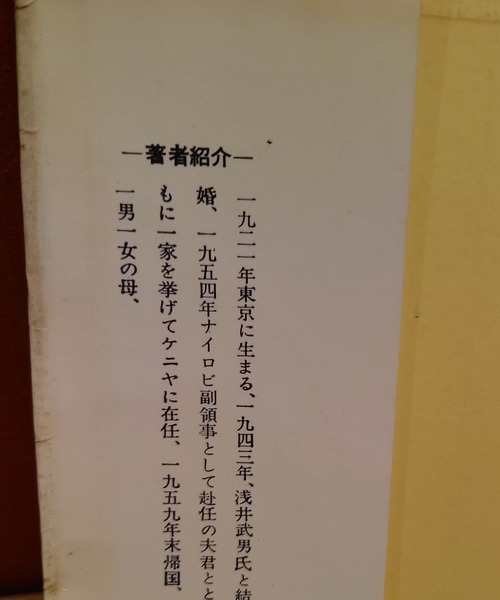 —著者紹介—
一九二一年東京に生まる、一九四三年、浅井武男氏と結
婚、一九五四年ナイロビ副領事として赴任の夫君とと
もに一家を挙げてケニヤに在任、一九五九年末帰国、
一男一女の母、